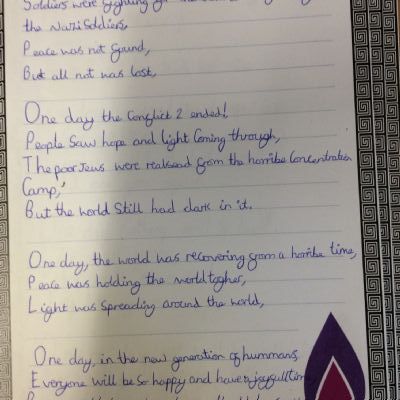 Soldiers were fighting for the
the Nazi Soldiers,
Peace was not found,
But all not was lost,
One day the Conflict 2 ended!,
People Saw hope and light Coming through,
The poor Jews were realsead from the horribe Concentration
Camp,
But the world Still had dark in it.
One day, the world was recovering from a horribe time,
Peace was holding the world togher,
Light was Spreading around the world,
One day, in the new generation of hummans,
Everyone will be So happy and have a joyfull time